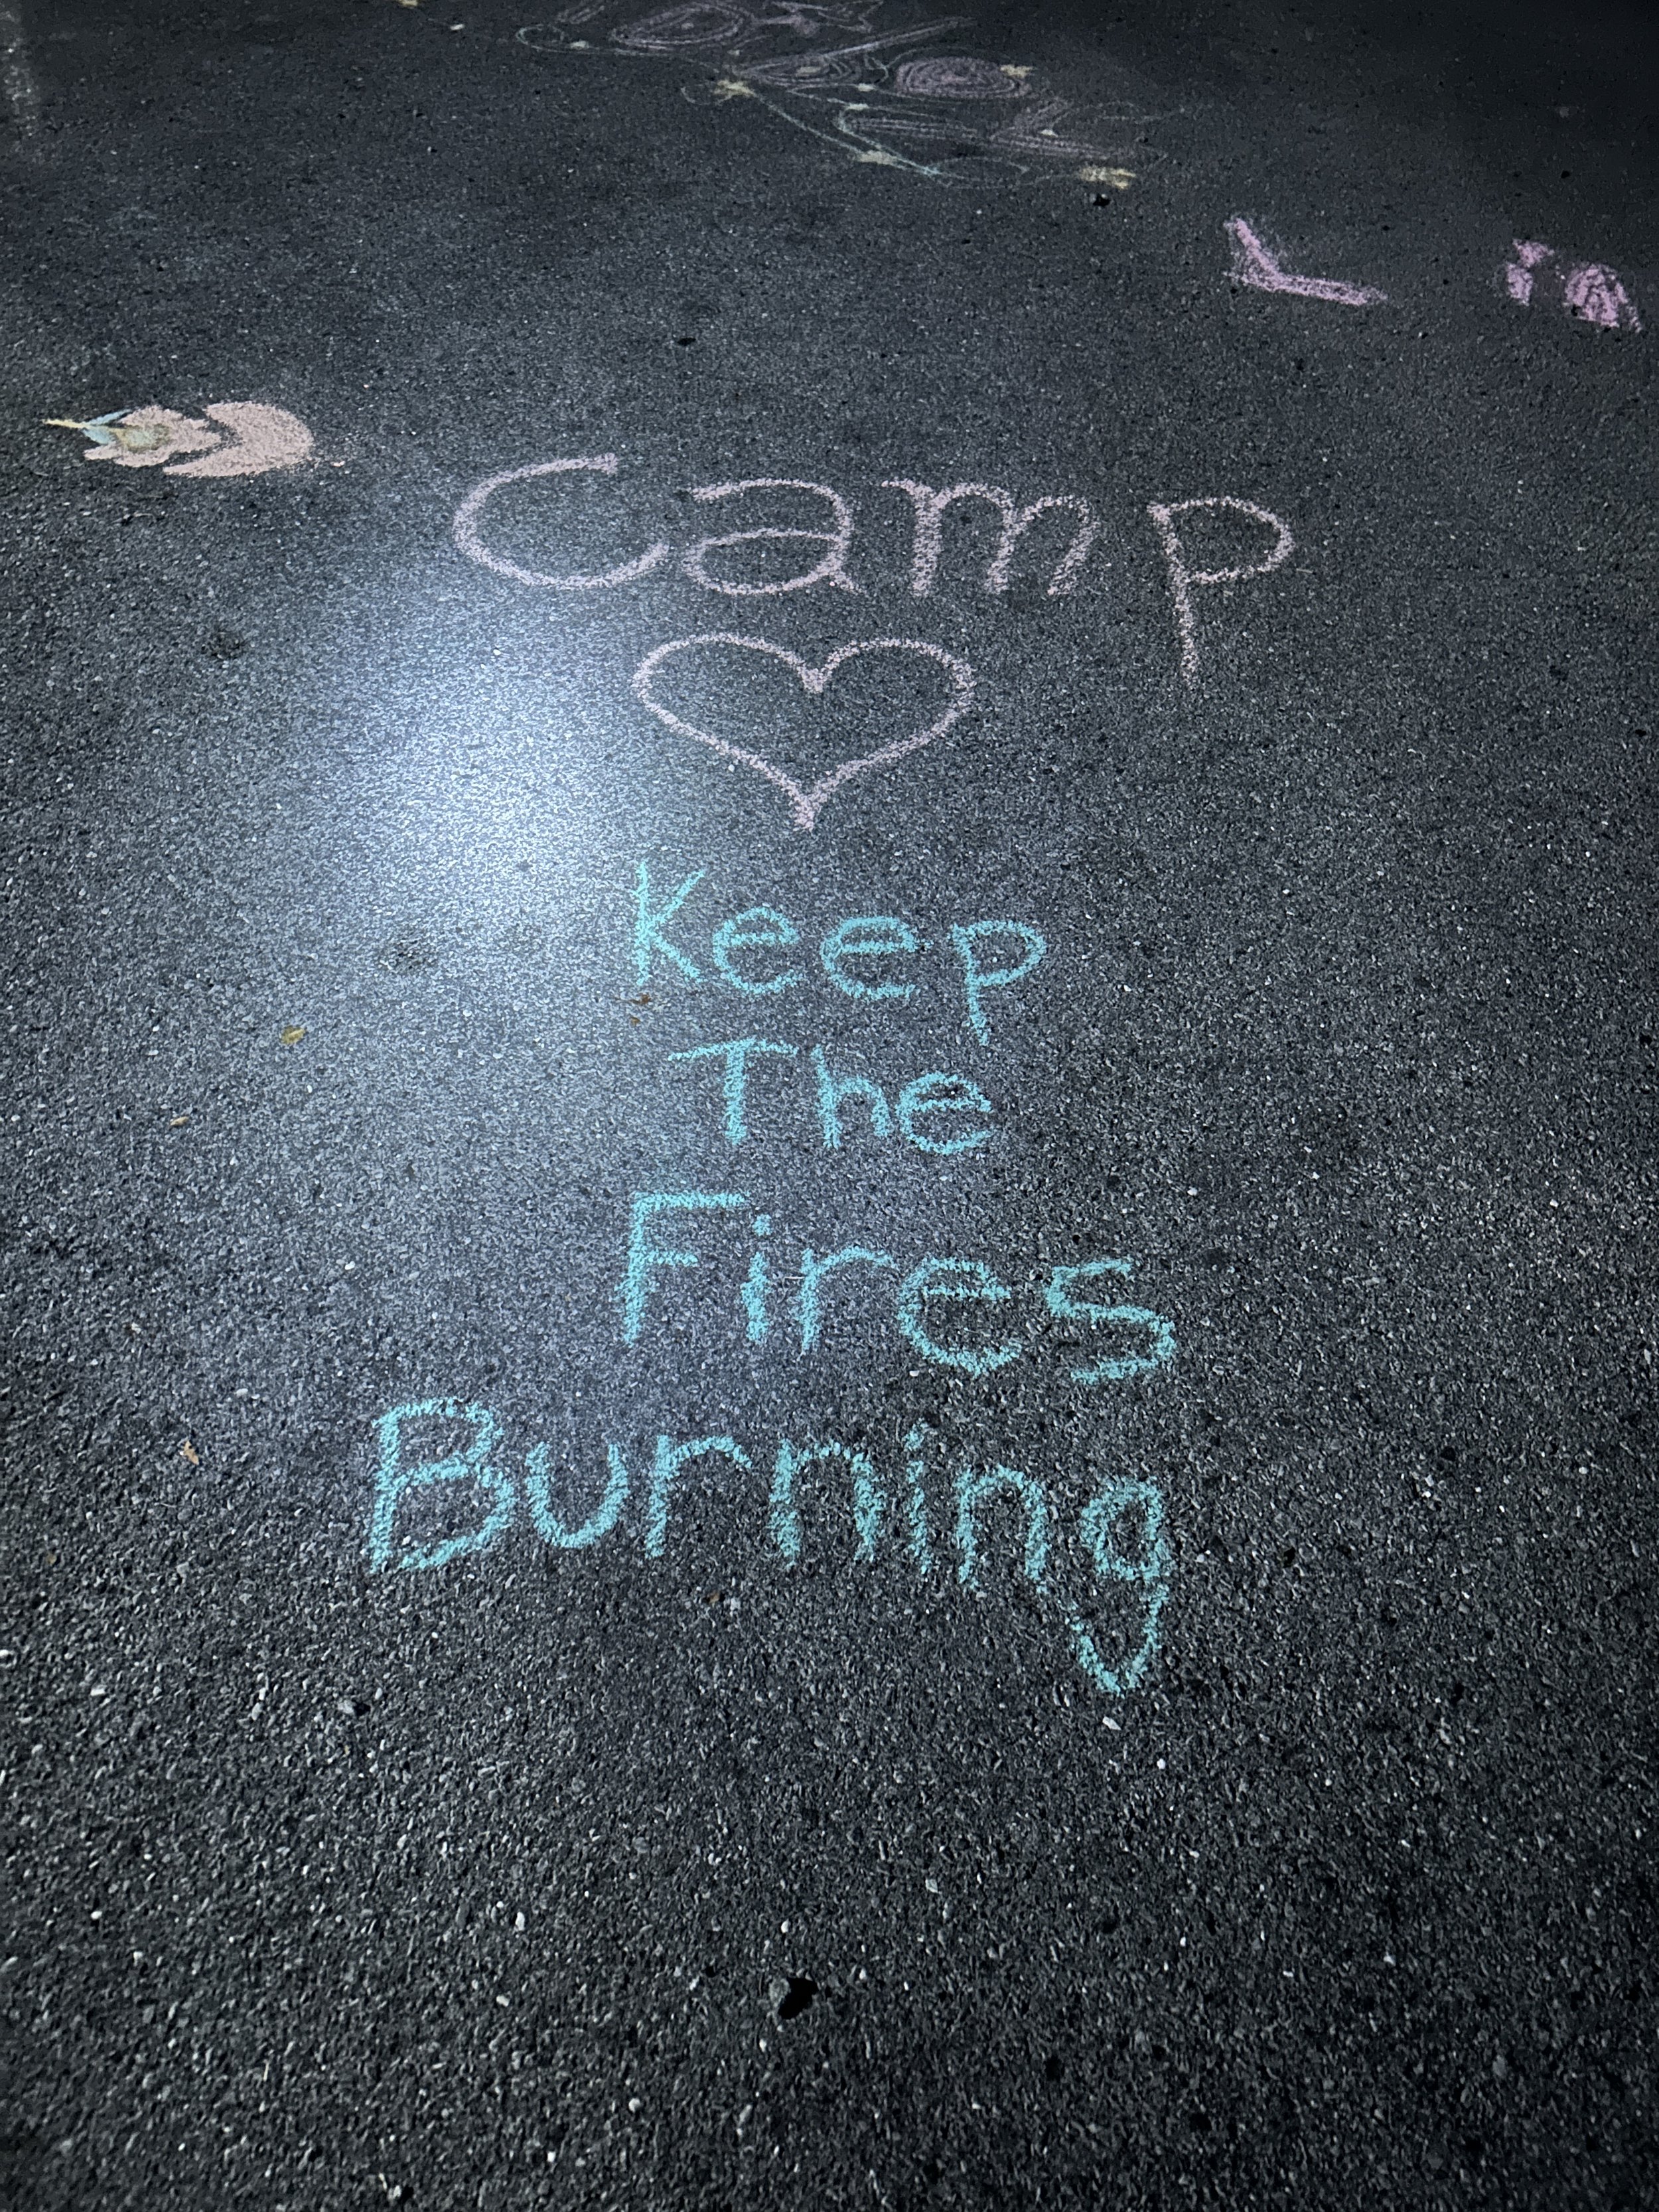 Camp
Keep
The
Fires
Burning